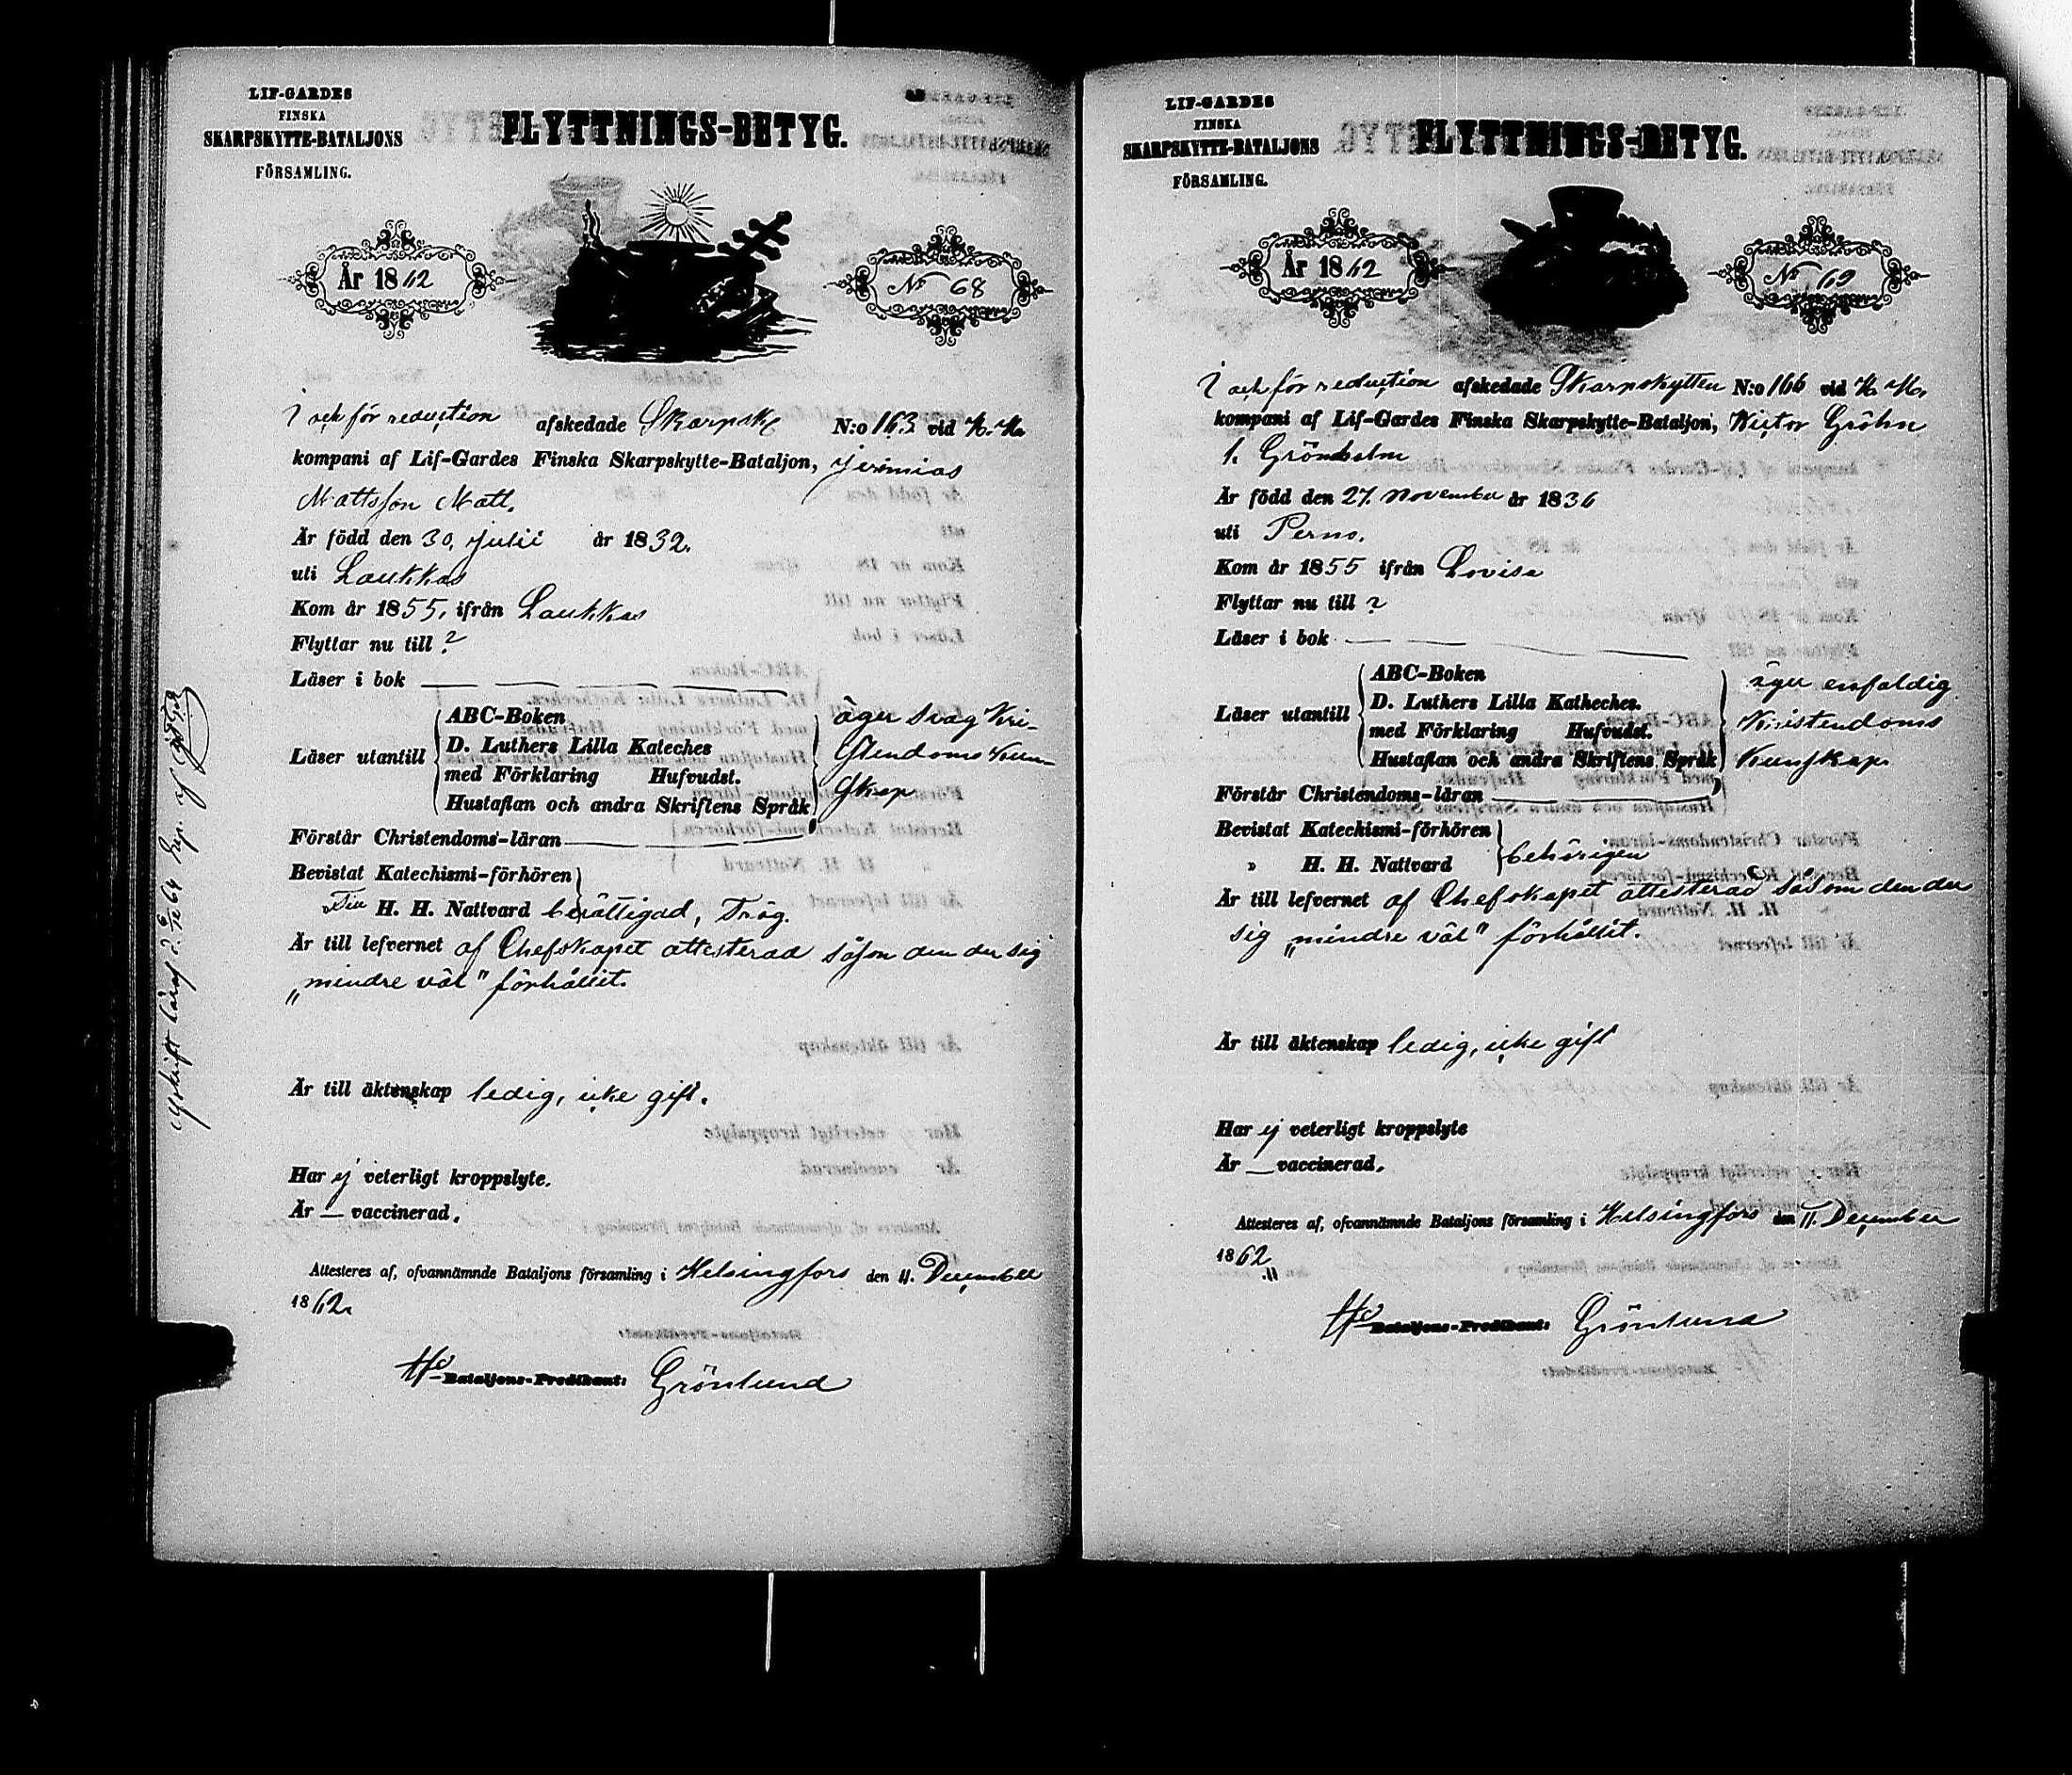 LIF-GARDES
FINSKA
SKARPSKYTTE-BATALJONS
FÖRSAMLING.
FLYTTNINGS-BETYG.
År 1862
No 68
I och för reduction afskedade Skarpsk N:o 163 vid K. K.
kompani af Lif-Gardes Finska Skarpskytte-Bataljon, Jeremias
Mattsson Matt.
Är född den 30. Julii år 1832.
uti Laukkas
Kom år 1855, ifrån Laukkas
Flyttar nu till ?
Läser i bok
Läser utantill
ABC-Boken
D. Luthers Lilla Kateches
med Förklaring Hufvudst.
Hustaflan och andra Skriftens Språk
äger svag Kri-
stendoms Kun-
skap
Förstår Christendoms-läran
Bevistat Katechismi-förhören
Till H. H. Nattvard berättigad, Trög.
Är till lefvernet af Chefskapet attesterad såson den der sig
„mindre väl" förhållit.
Är till äktenskap ledig, icke gift.
Har ej veterligt kroppslyte.
Är — vaccinerad.
Attesteres af, ofvannämnde Bataljons församling i Helsingfors den 11. December
1862.
Bataljons-Predikant: Grönlund
LIF-GARDES
FINSKA
SKARPSKYTTE-BATALJONS
FÖRSAMLING.
FLYTTNINGS-BETYG.
År 1862
No 69
I och för reduction afskedade Skarpskytten N:o 166 vid K. K.
kompani af Lif-Gardes Finska Skarpskytte-Bataljon, Victor Gröhn
l. Grönholm
Är född den 27. November år 1836
uti Perno.
Kom år 1855 ifrån Lovisa
Flyttar nu till ?
Läser i bok
Läser utantill
ABC-Boken
D. Luthers Lilla Katheches.
med Förklaring Hufvudst.
Hustaflan och andra Skriftens Språk
äger enfaldig
Kristendoms
Kunskap.
Förstår Christendoms-läran
Bevistat Katechismi-förhören
» H. H. Nattvard behörigen
Är till lefvernet af Chefskapet attesterad såsom den der
sig „mindre väl" förhållit.
Är till äktenskap ledig, icke gift
Har ej veterligt kroppslyte
Är — vaccinerad.
Attesteres af, ofvannämnde Bataljons församling i Helsingfors den 11. December
1862
Bataljons-Predikant: Grönlund